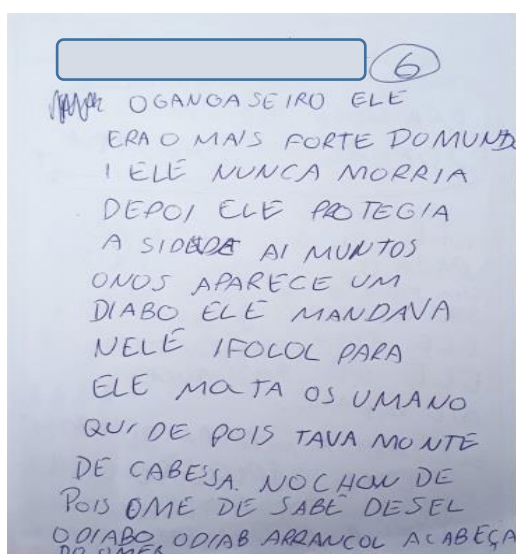 6
OGANGASEIRO ELE
ERA O MAIS FORTE DO MUND
I ELE NUNCA MORRIA
DEPOI ELE PROTEGIA
A SIDADE AI MUNTOS
ONOS APARECE UM
DIABO ELE MANDAVA
NELE IFOCOL PARA
ELE MATA OS UMANO
QUI DE POIS TAVA MONTE
DE CABESSA. NO CHOM DE
POIS OME DE SABE DESEL
O DIABO ODIAB ARRANCOL A CABEÇA
DO OMEG